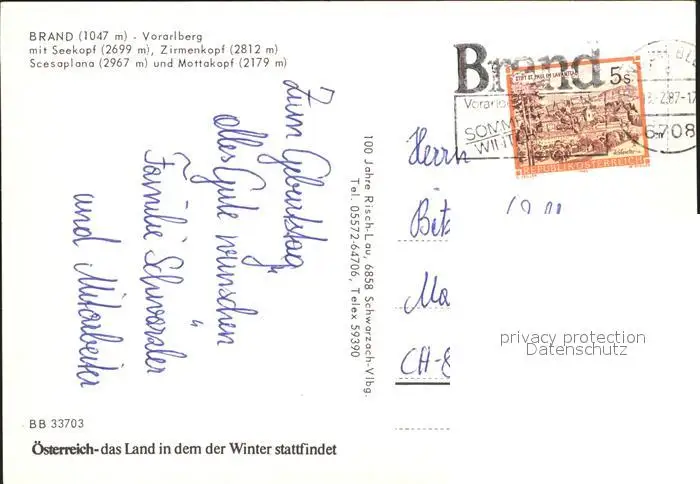 BRAND (1047 m) - Vorarlberg
mit Seekopf (2699 m), Zirmenkopf (2812 m)
Scesaplana (2967 m) und Mottakopf (2179 m)
Zum Geburtstag
alles Gute wünschen
Familie Schwärzler
und Mitarbeiter
BB 33703
Österreich-das Land in dem der Winter stattfindet
100 Jahre Risch-Lau, 6858 Schwarzach-Vlbg.
Tel. 05572-64706, Telex 59390
Brand
Vorarl
SOMM
WINT
5s
STIFT ST. PAUL IM LAVANTTAL
REPUBLIK ÖSTERREICH
2.87-17
6708
Herrn
CH-8
privacy protection
Datenschutz